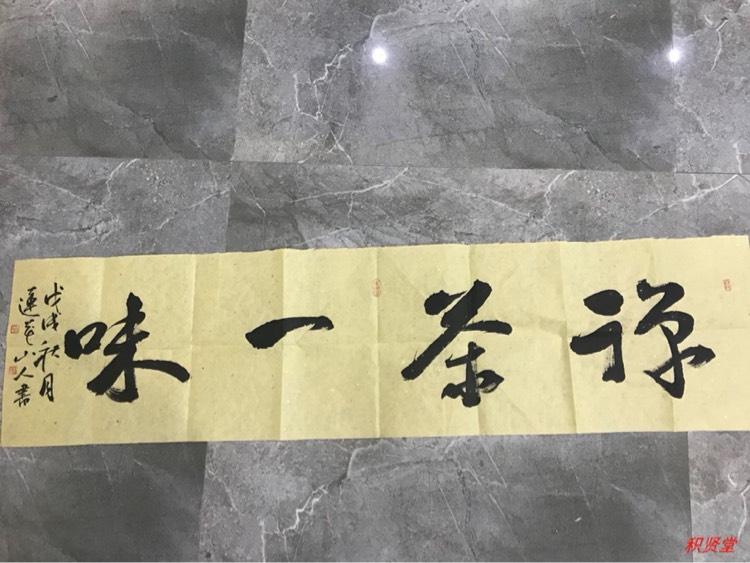 禅茶一味
戊戌秋月
莲花山人书
积贤堂